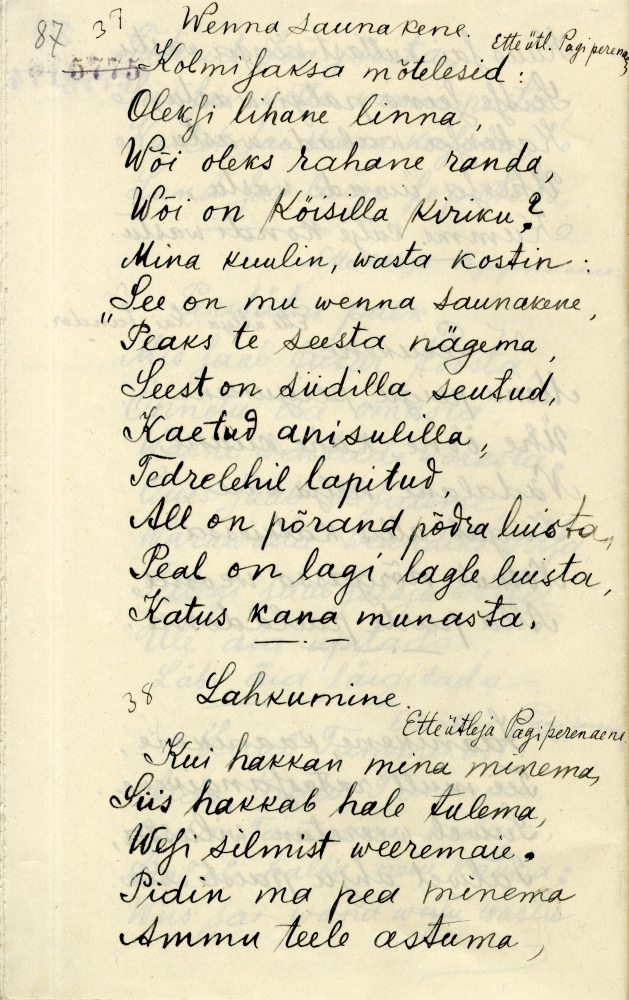 87 37 Wenna saunakene.
Etteütl. Pagi perenaene
5775
Kolmi saksa mõtelesid:
Oleksi lihane linna,
Wõi oleks rahane randa,
Wõi on Köisilla kiriku?
Mina kuulin, wasta kostin:
"See on mu wenna saunakene,
Peaks te seesta nägema,
Seest on siidilla seutud,
Kaetud anisulilla,
Tedrelehil lapitud,
All on põrand põdra luista,
Peal on lagi lagle luista,
Katus kana munasta.
38 Lahkumine.
Etteütleja Pagi perenaene.
Kui hakkan mina minema,
Siis hakkab hale tulema,
Wesi silmist weeremaie.
Pidin ma pea minema
Ammu teele astuma,